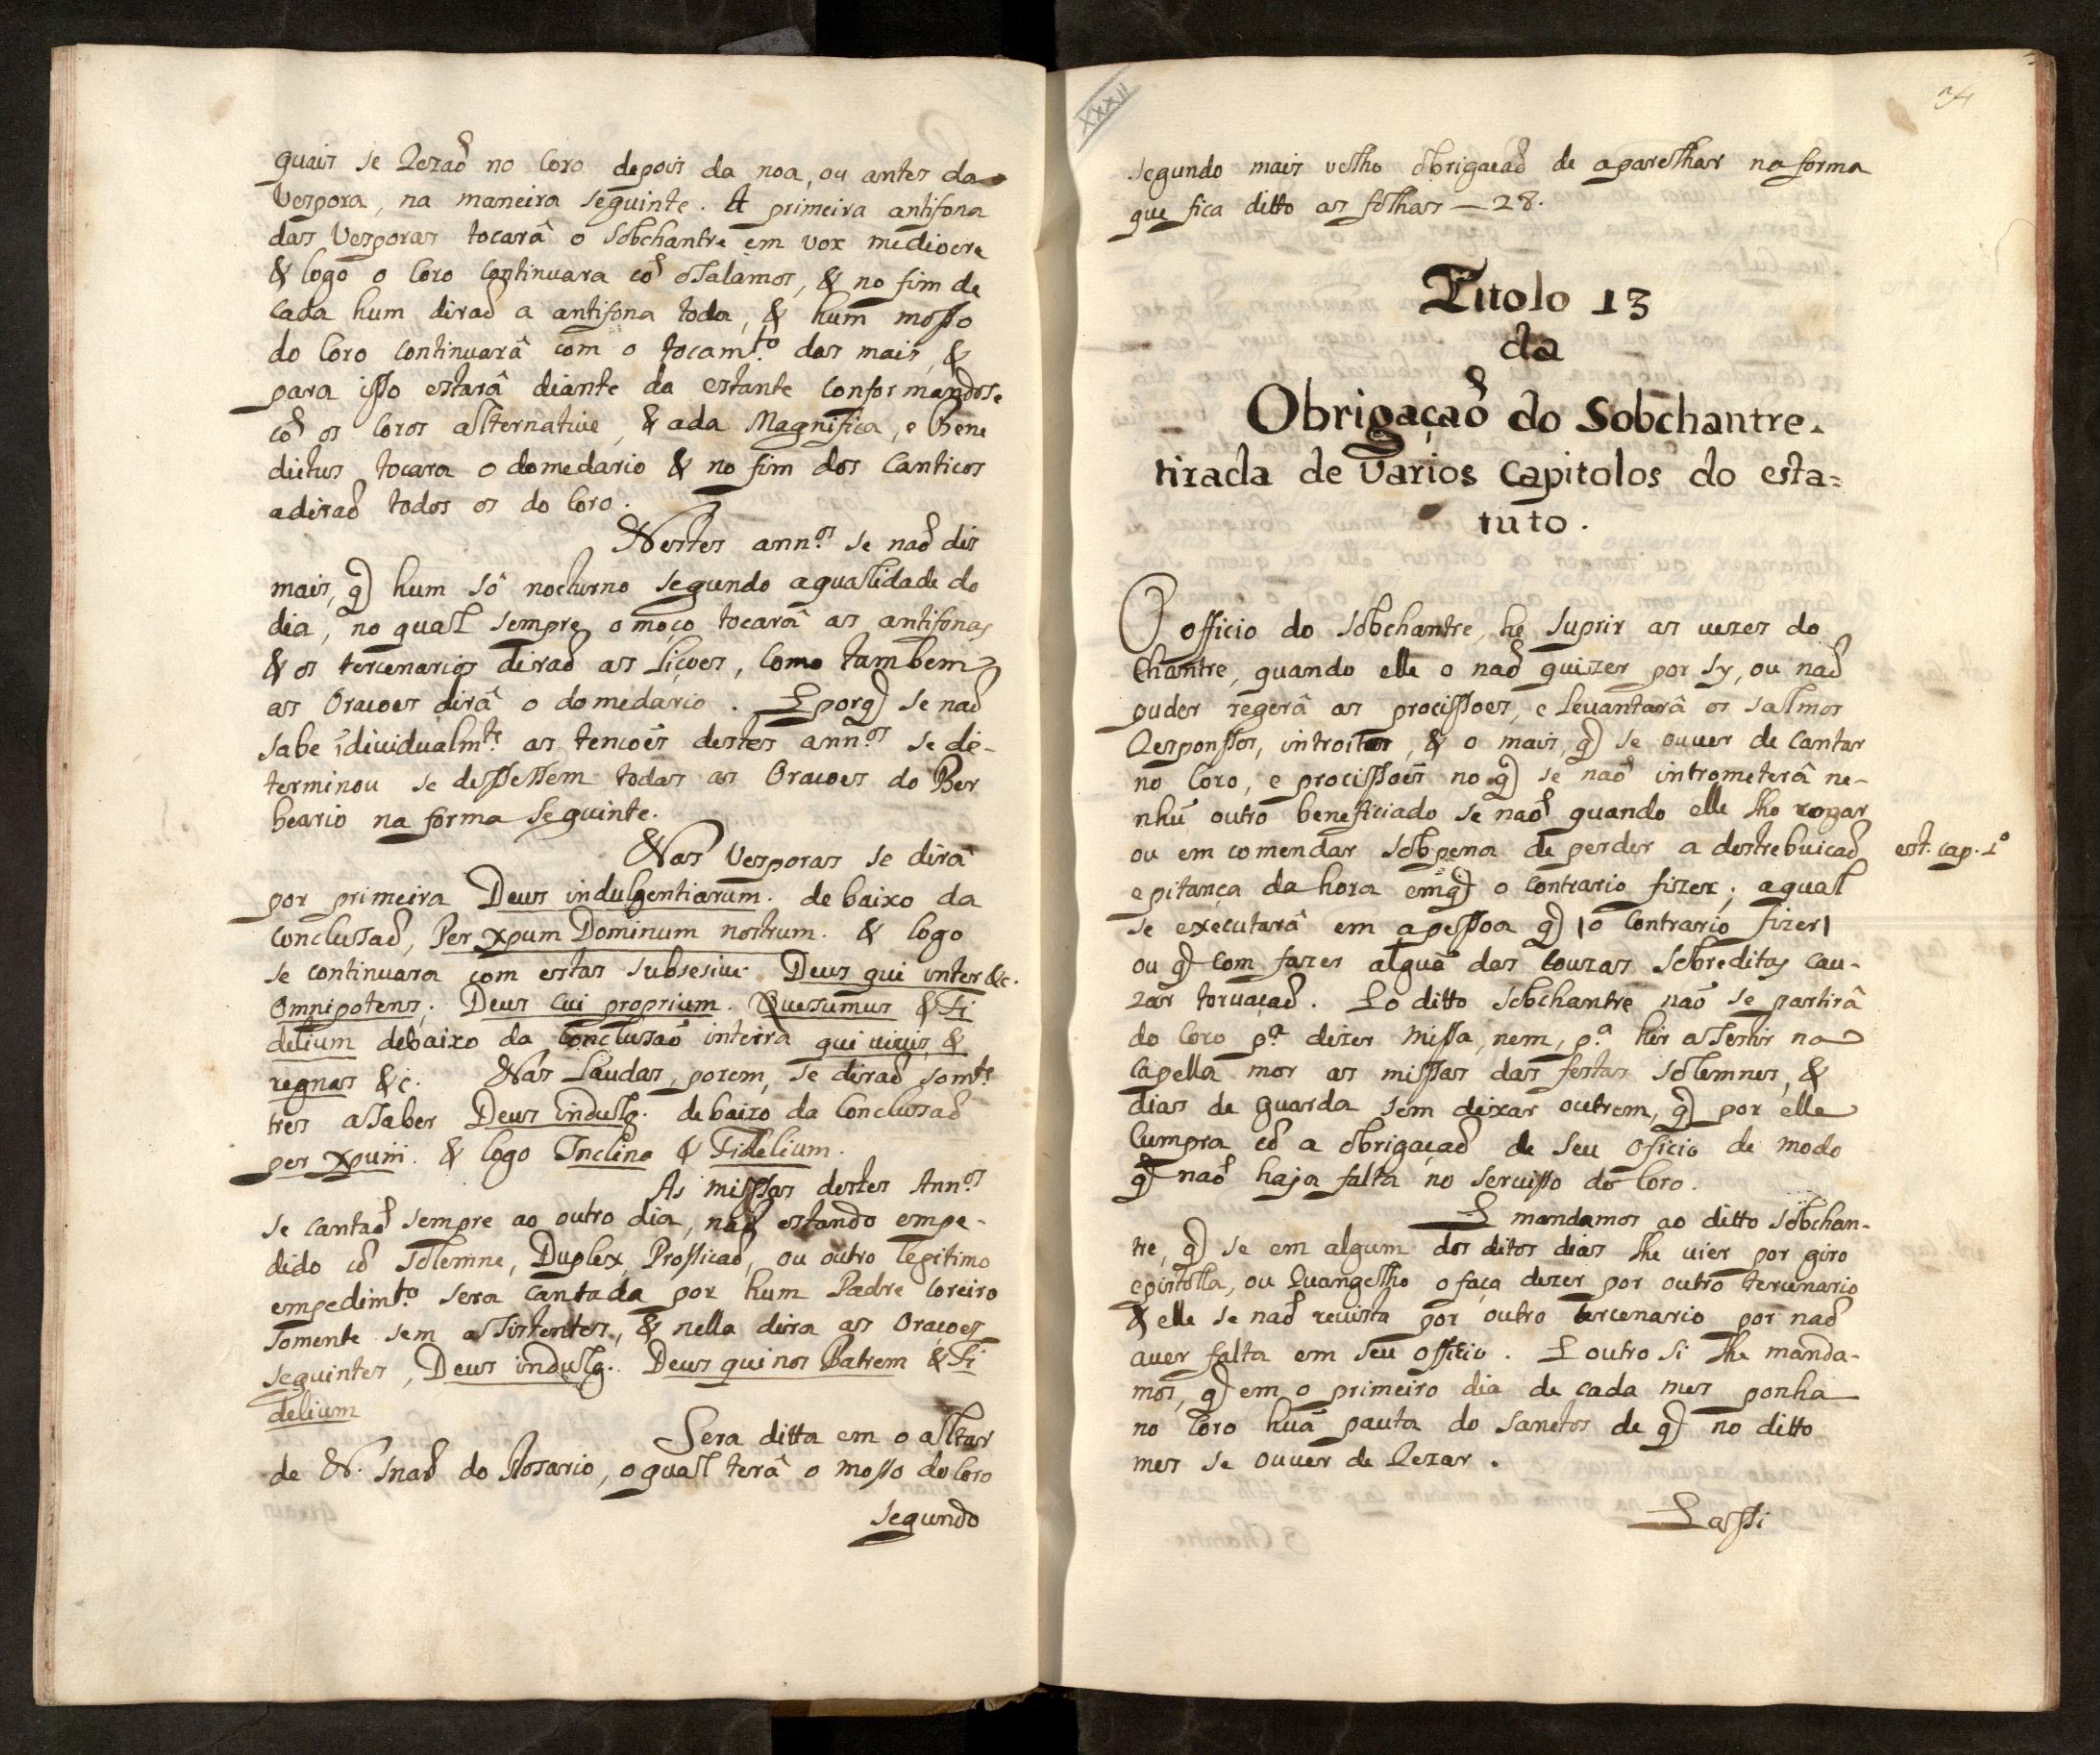 quais se Rezaõ no Coro depois da noa, ou antes da
Vespora, na maneira seguinte. A primeira antifona
das Vesporas tocarâ o Sobchantre em vox mediocre
& logo o Coro continuara cõ osalamos, & no fim de
cada hum diraõ a antifona toda, & hum mosso
do Coro continuarâ com o tocam.to das mais, &
para isso estarâ diante da estante conformandose
cõ os Coros alternatiue, & ada Magnifica, e Bene
dictus tocara o domedario & no fim dos Canticos
adiraõ todos os do Coro.
Nestes ann.os se naõ dis
mais, q hum sô nocturno segundo aqualidade do
dia, no qual sempre o moço tocarâ as antifonas
& os tercenarios diraõ as liçoes, como tambem
as Oraçoes dirâ o domedario. E porq se naõ
sabe ĩdiuidualm.te as tencoẽs destes ann.os se de-
terminou se dissessem todas as Oraçoes do Ber
beario na forma seguinte.
Nas Vesporas se dirâ
por primeira Deus indulgentiarum. de baixo da
conclusaõ, Per xpum Dominum nostrum. & logo
se continuara com estas subsesiue Deus qui inter &c.
Omnipotens. Deus cui proprium. Quesumus & Fi
delium debaixo da conclusaõ inteira qui uiuis, &
regnas &c. Nas Laudas, porem, se diraõ som.te
tres asaber Deus indulg. de baixo da Conclusaõ
per xpum. & logo Inclina & Fidelium.
As missas destes Ann.os
se cantaõ sempre ao outro dia, naõ estando empe-
dido cõ solemne, Duplex, Prossicaõ, ou outro legitimo
empedim.to sera cantada por hum Padre Coreiro
somente sem assistentes, & nella dira as Oraçoes
seguintes, Deus indulg. Deus qui nos Patrem & Fi
delium
Sera ditta em o altar
de N. Snaõ do Rosario, oqual terâ o mosso do Coro
segundo
XXXII
34
segundo mais velho obrigacaõ de aparelhar na forma
que fica ditto as folhas — 28.
Titolo 13
da
Obrigaçaõ do Sobchantre.
tirada de varios Capitolos do esta=
tuto.
O officio do Sobchantre, he suprir as uezes do
Chantre, quando elle o naõ quizer por sy, ou naõ
puder regerâ as procissoes, e leuantarâ os salmos
Responssos, introitos, & o mais, q se ouuer de cantar
no Coro, e procissoẽs no q se naõ intrometerâ ne-
nhũ outro beneficiado se naõ quando elle lho rogar
ou em comendar sobpena de perder a destrebuicaõ
est. cap. 1º
e pitança da hora emq o contrario fizer; aqual
se executarâ em apessoa q |o contrario fizer|
ou q com fazer alguã das couzas sobreditas cau-
zar toruaçaõ. E o ditto Sobchantre naõ se partirâ
do Coro p.a dizer missa, nem, p.a hir assestir na
Capella mor as missas das festas solemnes, &
dias de guarda sem deixar outrem, q por elle
Cumpra cõ a obrigaçaõ de seu oficio de modo
q naõ haja falta no seruisso do Coro.
E mandamos ao ditto Sobchan-
tre, q se em algum dos ditos dias lhe uier por giro
epistolla, ou Euangelho o faça dizer por outro tercenario
& elle se naõ reuista por outro tercenario por naõ
auer falta em seu officio. E outro si lhe manda-
mos, q em o primeiro dia de cada mes ponha
no Coro huã pauta do sanctos de q no ditto
mes se ouuer de Rezar.
E assi